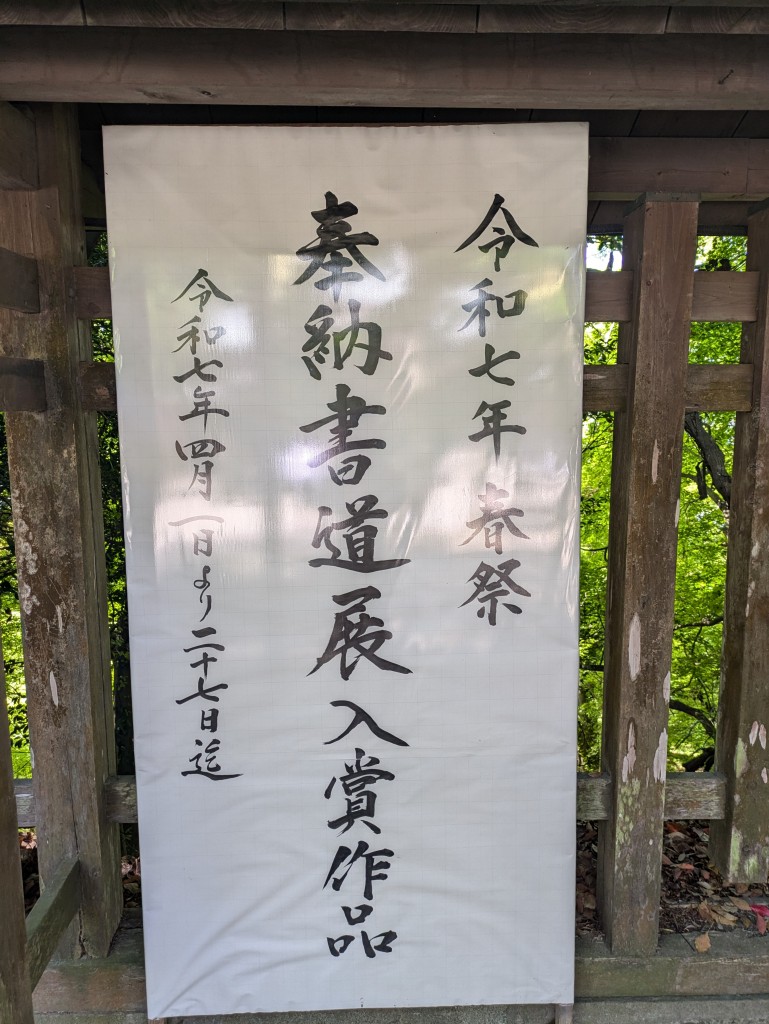 令和七年 春祭
奉納書道展入賞作品
令和七年四月一日より二十七日迄